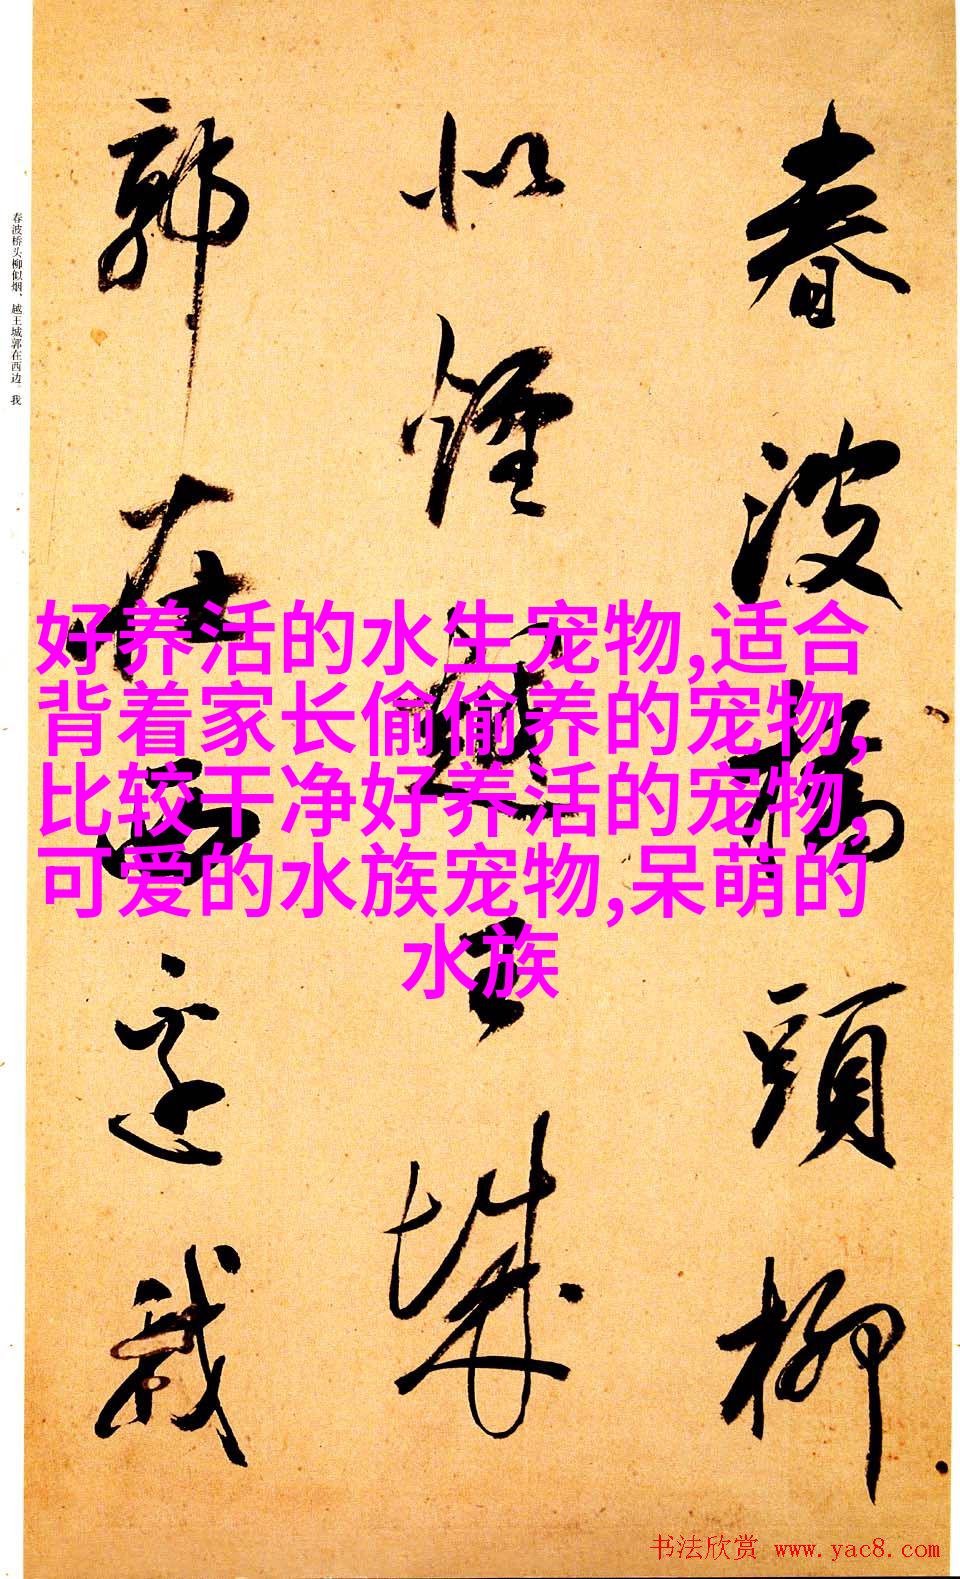 春波橋頭柳
似煙越王城
郭在西边我
春波桥头柳似烟、越王城郭在西边。我
好养活的水生宠物,适合
背着家长偷偷养的宠物,
比较干净好养活的宠物,
可爱的水族宠物,呆萌的
水族
书法欣赏 www.yac8.com